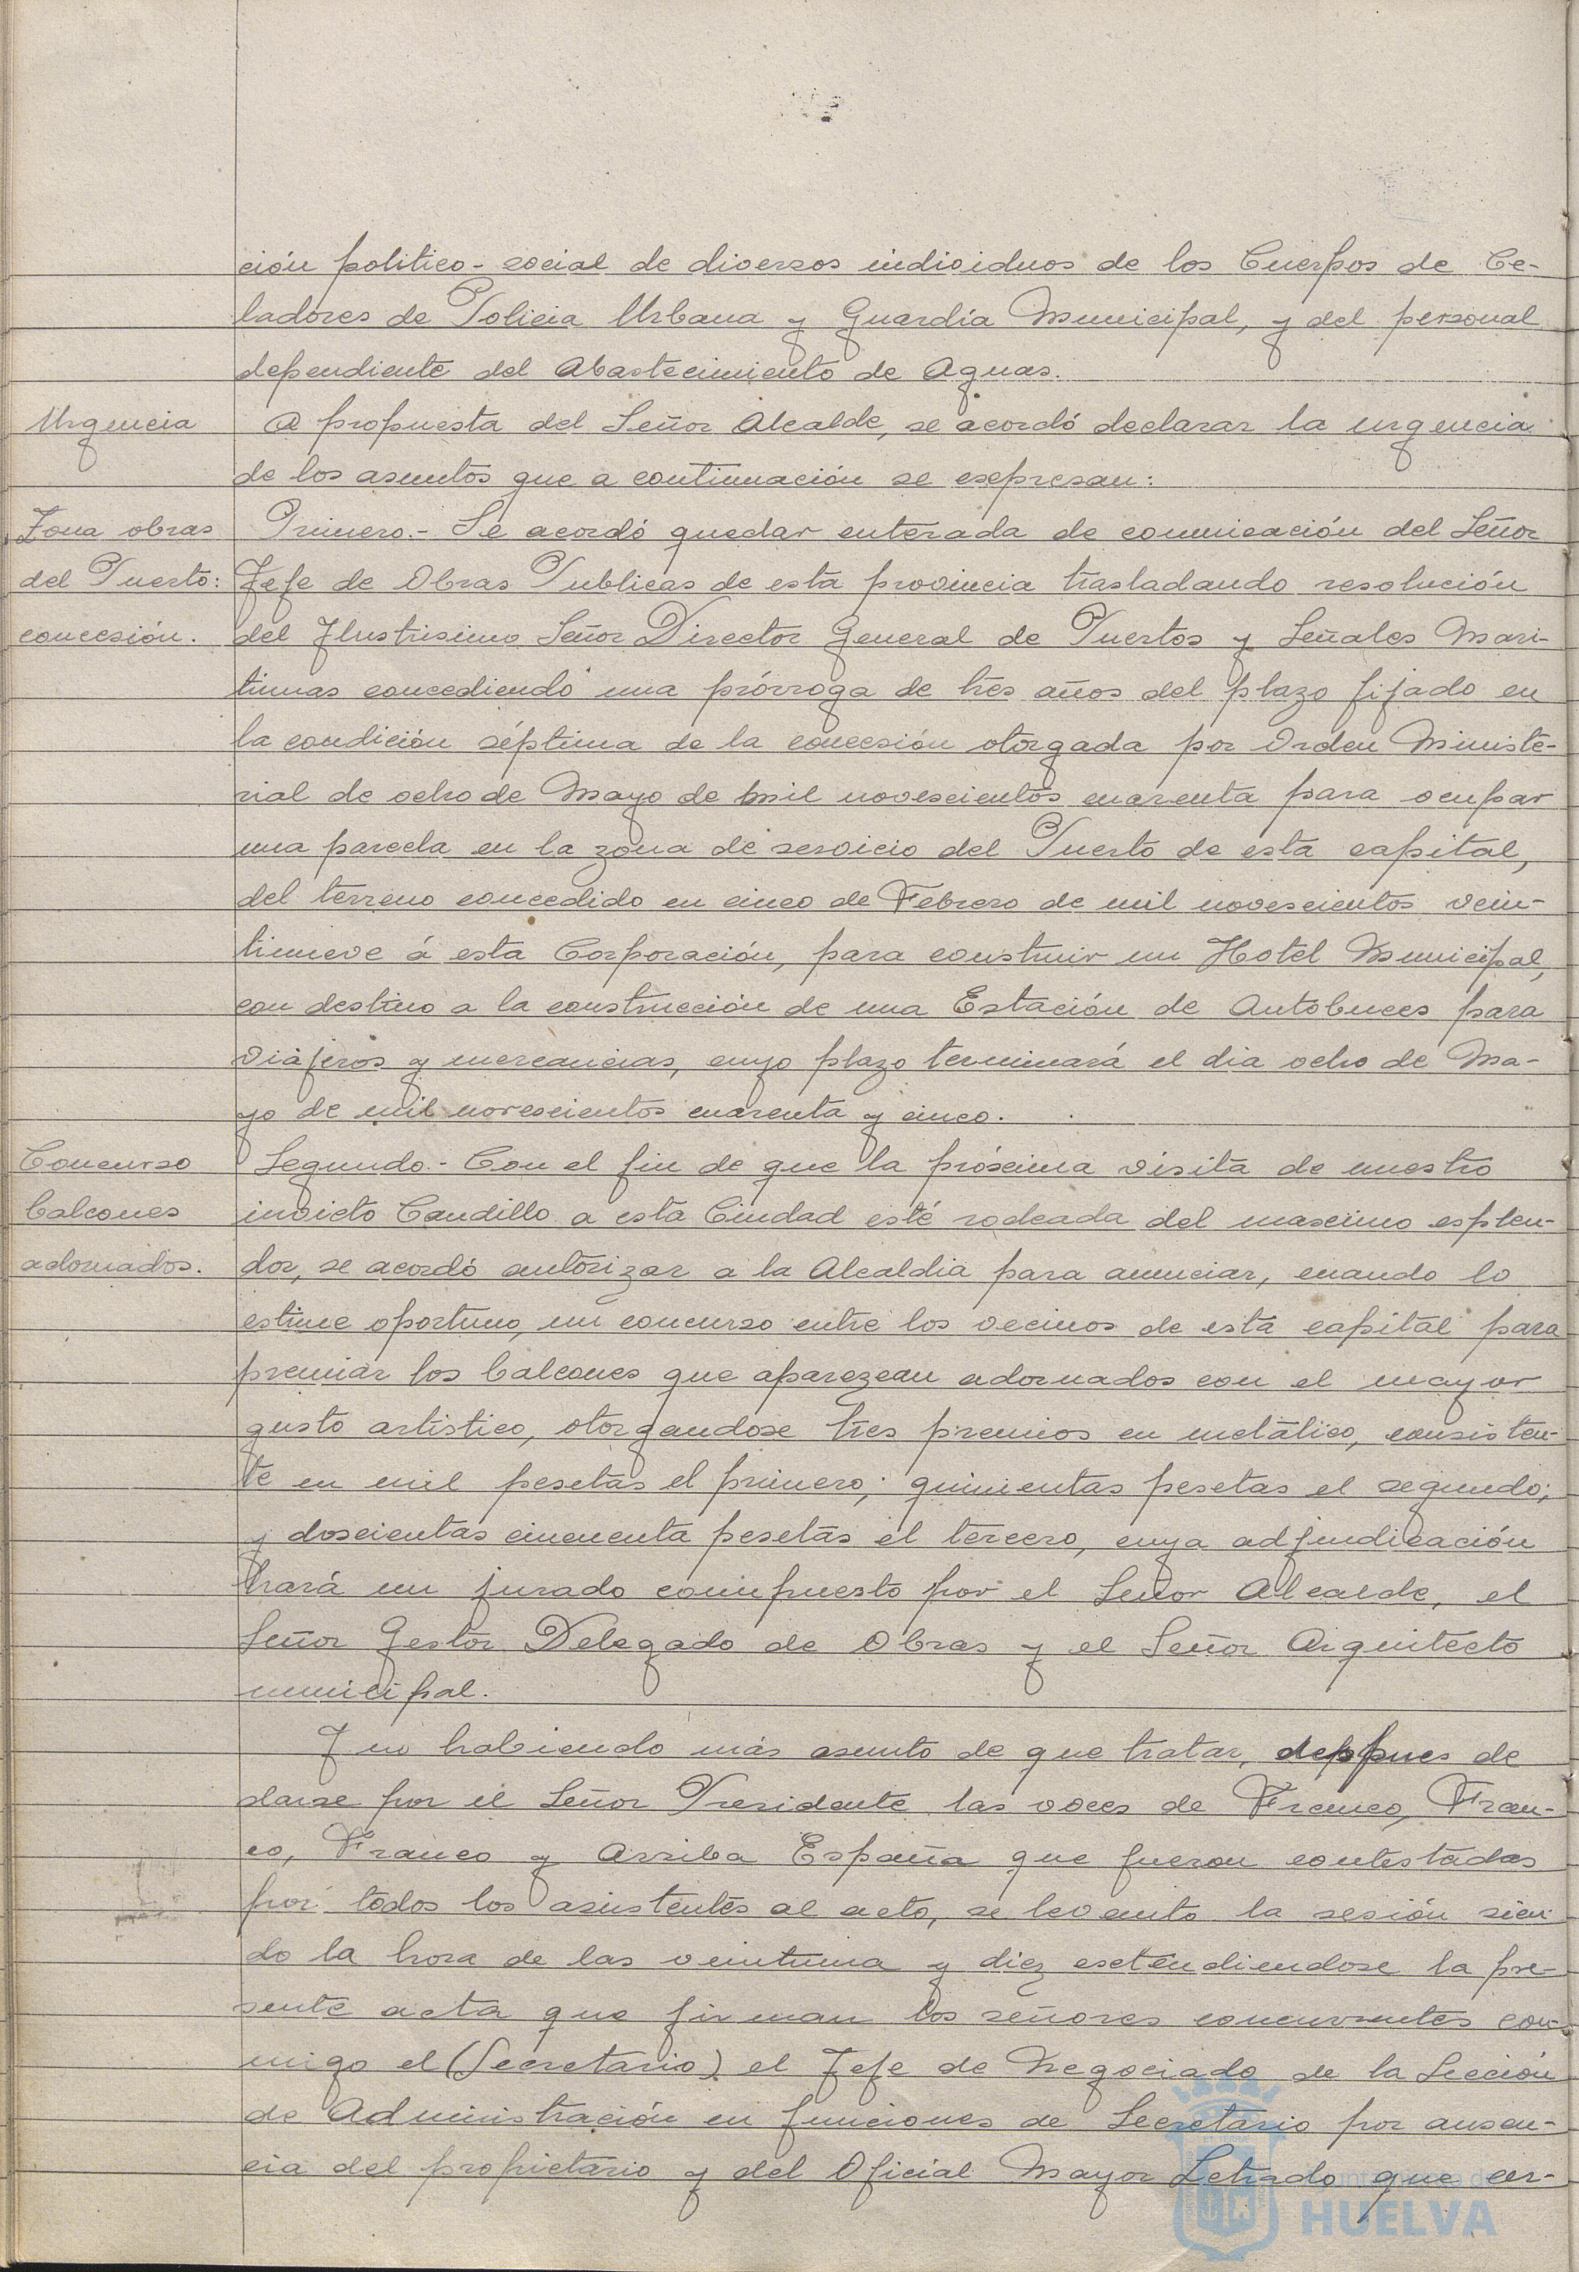 ción politico-social de diversos individuos de los Cuerpos de Ce-
ladores de Policia Urbana y Guardia Municipal, y del personal
dependiente del Abastecimiento de Aguas.
Urgencia
A propuesta del Señor Alcalde, se acordó declarar la urgencia
de los asuntos que a continuación se expresan:
Zona obras
del Puerto:
concesión.
Primero.- Se acordó quedar enterada de comunicación del Señor
Jefe de Obras Publicas de esta provincia trasladando resolución
del Ilustrisimo Señor Director General de Puertos y Señales Mari-
timas concediendo una prórroga de tres años del plazo fijado en
la condición séptima de la concesión otorgada por Orden Ministe-
rial de ocho de Mayo de mil novescientos cuarenta para ocupar
una parcela en la zona de servicio del Puerto de esta capital,
del terreno concedido en cinco de Febrero de mil novescientos vein-
tinueve á esta Corporación, para construir un Hotel Municipal,
con destino a la construcción de una Estación de Autobuces para
viajeros y mercancias, cuyo plazo terminará el dia ocho de Ma-
yo de mil novescientos cuarenta y cinco.
Concurso
balcones
adornados.
Segundo.- Con el fin de que la próxima visita de nuestro
invicto Caudillo a esta Ciudad esté rodeada del maximo esplen-
dor, se acordó autorizar a la Alcaldia para anunciar, cuando lo
estime oportuno, un concurso entre los vecinos de esta capital para
premiar los balcones que aparezcan adornados con el mayor
gusto artistico, otorgandose tres premios en metálico, consisten-
te en mil pesetas el primero; quinientas pesetas el segundo;
y doscientas cincuenta pesetas el tercero, cuya adjudicación
hará un jurado compuesto por el Señor Alcalde, el
Señor Gestor Delegado de Obras y el Señor Arquitecto
municipal.
Y no habiendo más asunto de que tratar, despues de
darse por el Señor Presidente las voces de Franco, Fran-
co, Franco y Arriba España que fueron contestadas
por todos los asistentes al acto, se levanto la sesión sien-
do la hora de las veintiuna y diez extendiendose la pre-
sente acta que firman los señores concurrentes con-
migo el (Secretario) el Jefe de Negociado de la Sección
de Administración en funciones de Secretario por ausen-
cia del propietario y del Oficial Mayor Letrado que cer-
Ayuntamiento de
HUELVA